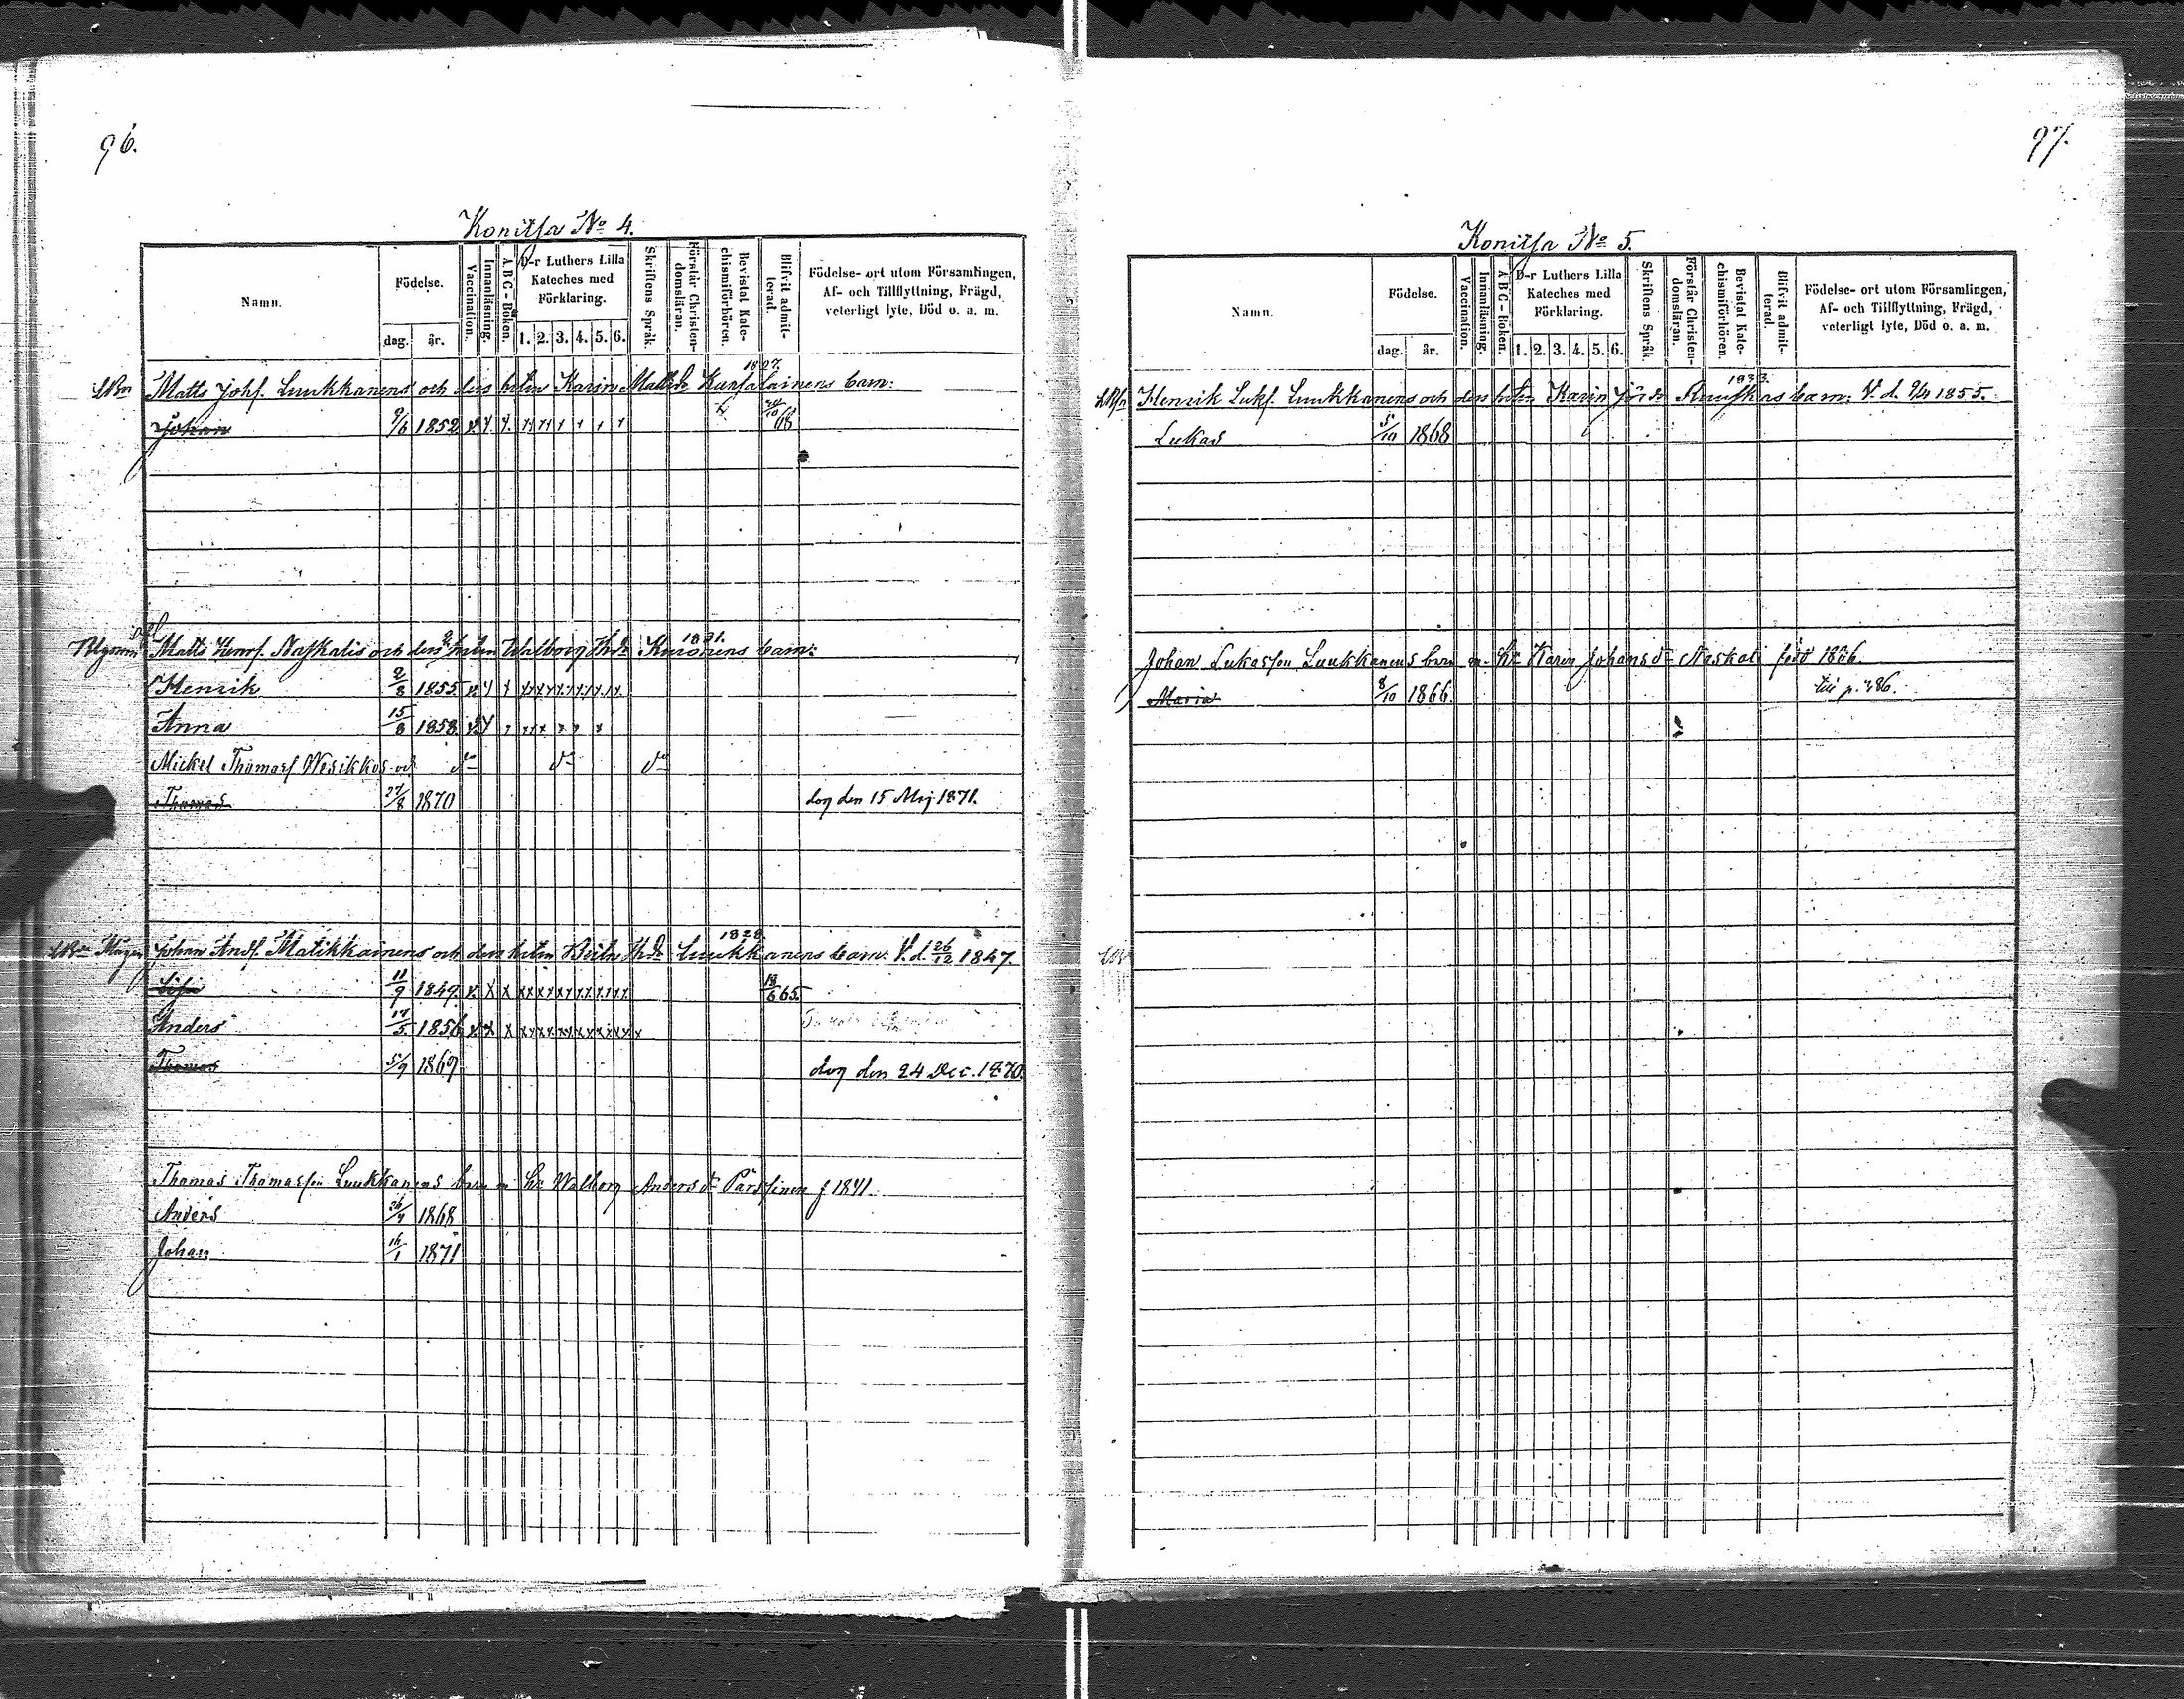 96.
Konitsa No 4.
Namn.
Födelse.
dag. år.
Vaccination.
Innanläsning.
A B C - Boken.
D-r Luthers Lilla Kateches med Förklaring.
1. 2. 3. 4. 5. 6.
Skriftens Språk.
Förstår Christendomsläran.
Bevistat Katechismiförhören.
Blifvit admitterad.
Födelse- ort utom Församlingen, Af- och Tillflyttning, Frägd, veterligt lyte, Död o. a. m.
1827.
Matts Johs. Luukkanens och dess hu Karin Mattsdr barn:
Johan 9/6 1852 x x x x x x x x x 24/10 68
1831.
Matts Henrs. Naskalis och dess 2 hu Walborg Kuronens barn:
Henrik 2/8 1855 x x x x x x x x x x x x
Anna 15/8 1858 x x x x x x x x
Mickel Thomass Wesikkos och do do do
Thomas 27/8 1870 dog den 15 Maj 1871.
1828.
Johan Ands. Matikkainens och dess hu Luukkanens barn: V. d. 26/12 1847.
Lisa 11/9 1849. x x x x x x x x x x x x 18/6 65.
Anders 17/5 1856 x x x x x x x x x x x x x
Thomas 5/9 1869 dog den 24 Dec. 1870.
Thomas Thomasson Luukkanens barn m. hu Walborg Anders dr Pärssinen f 1841.
Anders 26/4 1868
Johan 16/1 1871
97.
Konitsa No 5.
Namn.
Födelse.
dag. år.
Vaccination.
Innanläsning.
A B C - Boken.
D-r Luthers Lilla Kateches med Förklaring.
1. 2. 3. 4. 5. 6.
Skriftens Språk.
Förstår Christendomsläran.
Bevistat Katechismiförhören.
Blifvit admitterad.
Födelse- ort utom Församlingen, Af- och Tillflyttning, Frägd, veterligt lyte, Död o. a. m.
1833.
Henrik Luks. Luukkanens och dess hu Karin barn: V. d. 1855.
Lukas 5/10 1868
Johan Lukasson Luukkanens barn m. hu Karin Johansdr Naskali född
Maria 8/10 1866. till p. 186.